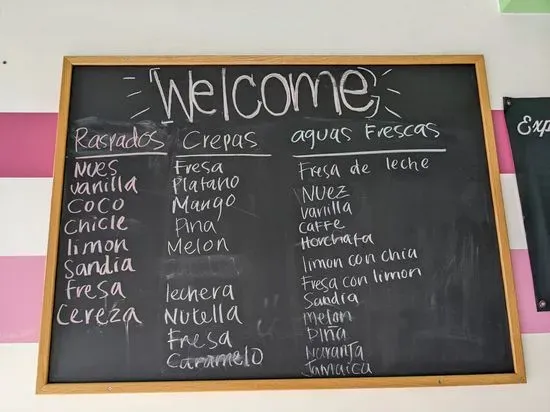 Welcome
Raspados
Nues
Vanilla
Coco
Chicle
limon
Sandia
Fresa
Cereza
Crepas
Fresa
Platano
Mango
Pina
Melon
lechera
Nutella
Fresa
Caramelo
aguas Frescas
Fresa de leche
Nuez
Vanilla
Caffe
Horchata
limon con chia
Fresa con limon
Sandia
melon
Piña
Naranja
Jamaica
Exp